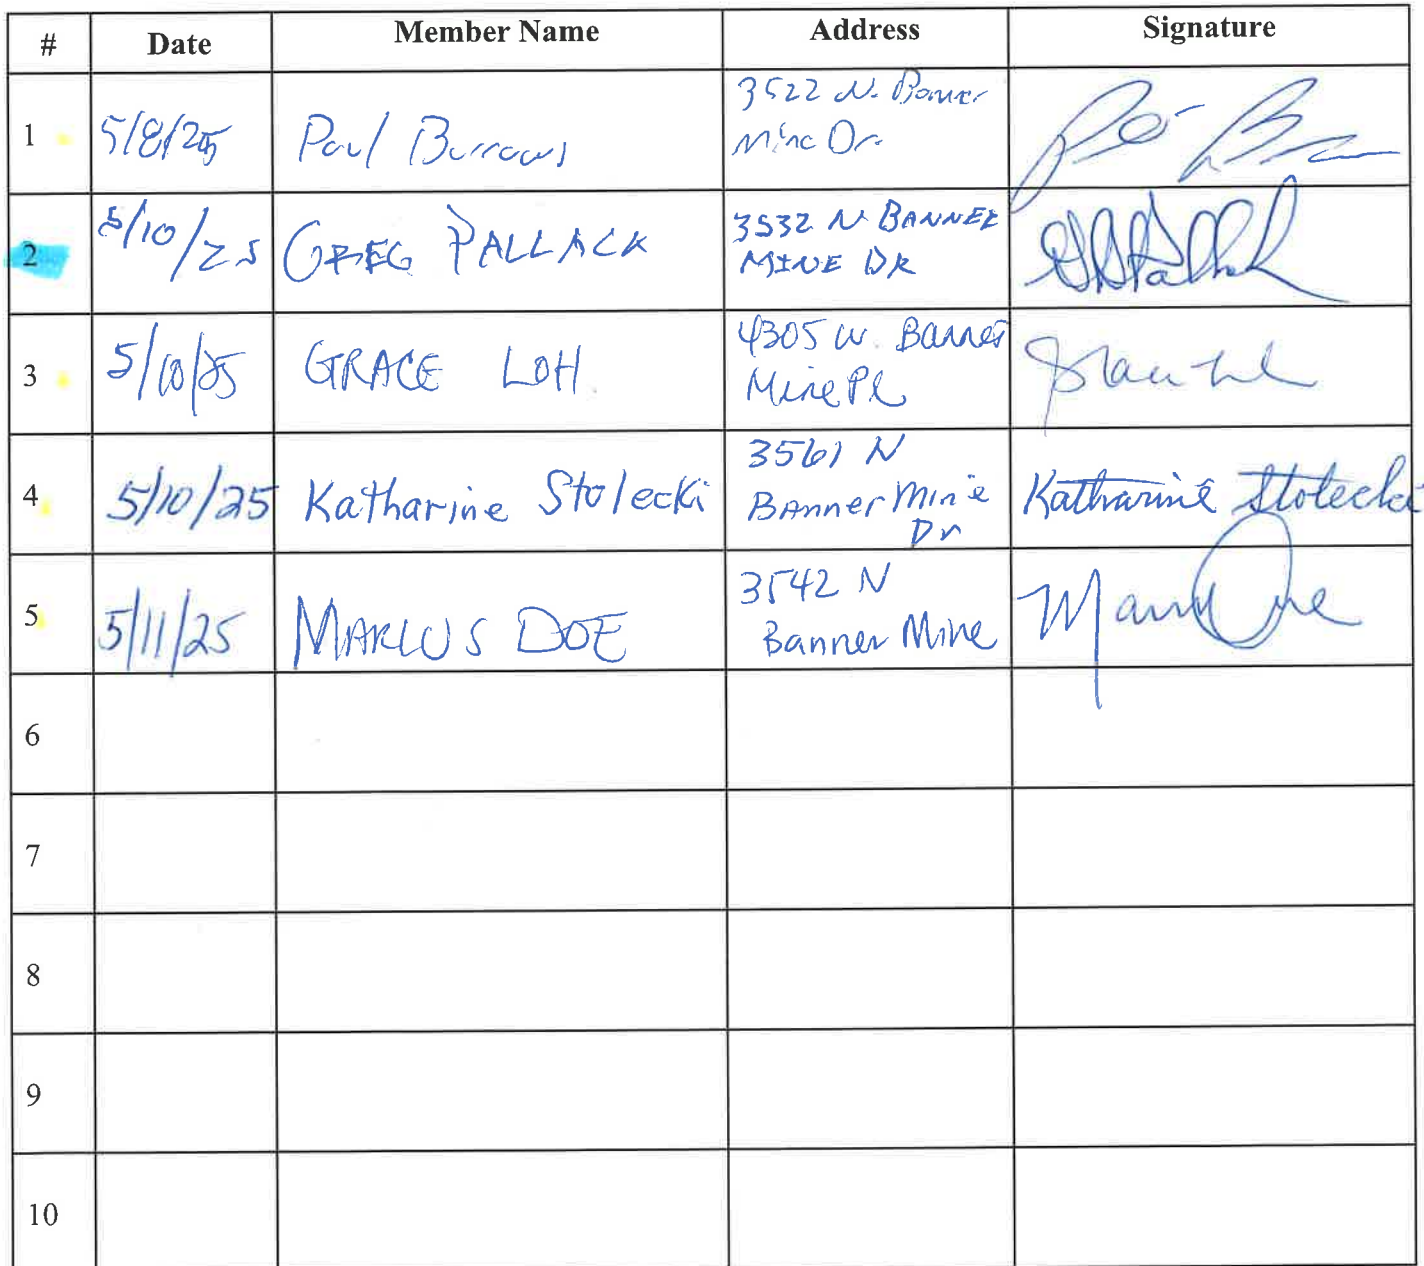 # Date Member Name Address Signature
1 5/8/25 Paul Burrows 3522 N. Banner
Mine Dr.
2 5/10/25 GREG PALLACK 3532 N BANNER
MINE DR
3 5/10/25 GRACE LOH 4305 W. Banner
Mine Pl
4 5/10/25 Katharine Stolecki 3561 N
Banner Mine
Dr
Katharine Stolecki
5 5/11/25 MARCUS DOE 3542 N
Banner Mine
6
7
8
9
10